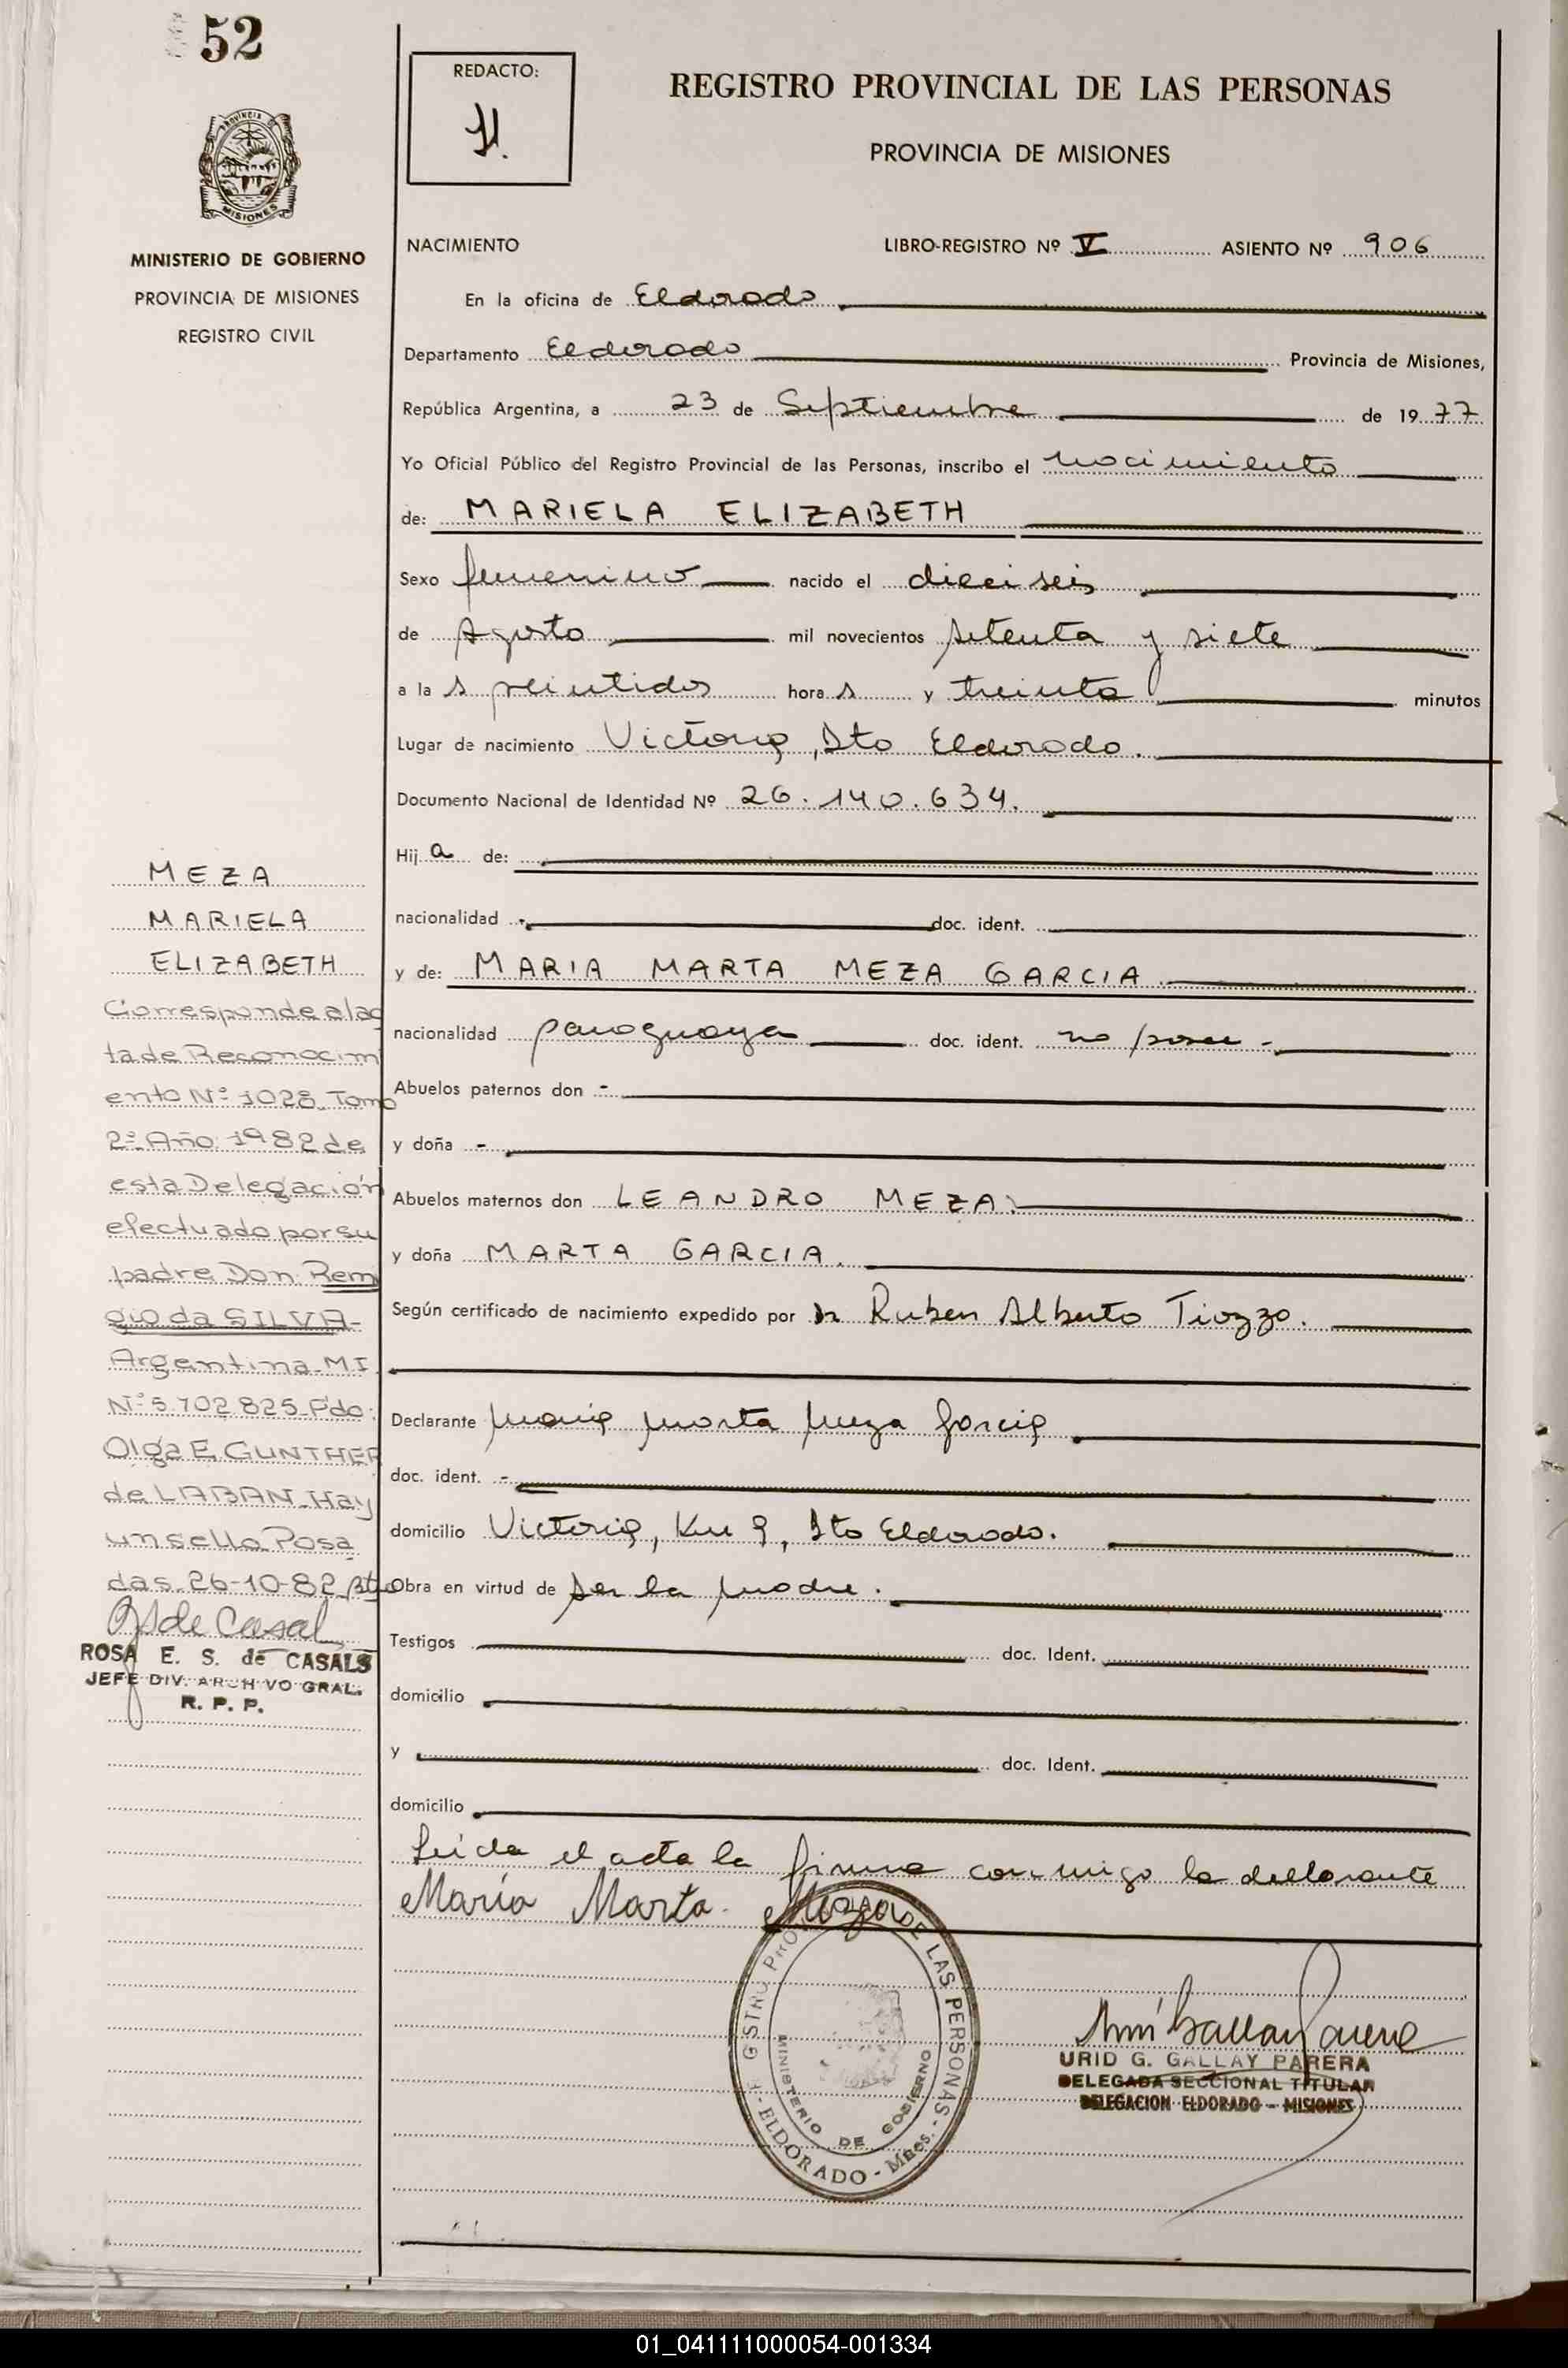 52
REDACTO:
REGISTRO PROVINCIAL DE LAS PERSONAS
PROVINCIA DE MISIONES
PROVINCIA DE
MISIONES
MINISTERIO DE GOBIERNO
PROVINCIA DE MISIONES
REGISTRO CIVIL
NACIMIENTO LIBRO-REGISTRO Nº V ASIENTO Nº 906
En la oficina de Eldorado
Departamento Eldorado Provincia de Misiones,
República Argentina, a 23 de Septiembre de 1977
Yo Oficial Público del Registro Provincial de las Personas, inscribo el nacimiento
de: MARIELA ELIZABETH
Sexo femenino nacido el dieciseis
de Agosto mil novecientos setenta y siete
a la s veintidos hora s y treinta minutos
Lugar de nacimiento Victoria, Dto Eldorado.
Documento Nacional de Identidad Nº 26.140.634.
Hij a de:
nacionalidad - doc. ident.
y de: MARIA MARTA MEZA GARCIA
nacionalidad paraguaya doc. ident. no posee -
Abuelos paternos don -
y doña -
Abuelos maternos don LEANDRO MEZA
y doña MARTA GARCIA.
Según certificado de nacimiento expedido por Dr Ruben Alberto Tiozzo.
Declarante Maria Marta Meza Garcia
doc. ident. -
domicilio Victoria, Km 9, Dto Eldorado.
Obra en virtud de ser la madre.
Testigos doc. Ident.
domicilio
y doc. Ident.
domicilio
Leida el acta la firma conmigo la declarante
María Marta Meza
MEZA
MARIELA
ELIZABETH
Corresponde al ac
ta de Reconocim
ento Nº 1028 Tomo
2º Año 1982 de
esta Delegación
efectuado por su
padre Don: Remi
gio da SILVA-
Argentina-M.I.
Nº 5.702.825 Fdo:
Olga E. GUNTHER
de LABAN-Hay
un sello Posa
das 26-10-82
de Casal
ROSA E. S. de CASALS
JEFE DIV. ARCHIVO GRAL.
R. P. P.
DE LAS PERSONAS - ELDORADO - Mnes.
MINISTERIO DE GOBIERNO
Gallay Parera
URID G. GALLAY PARERA
DELEGADA SECCIONAL TITULAR
DELEGACION ELDORADO - MISIONES
01_041111000054-001334